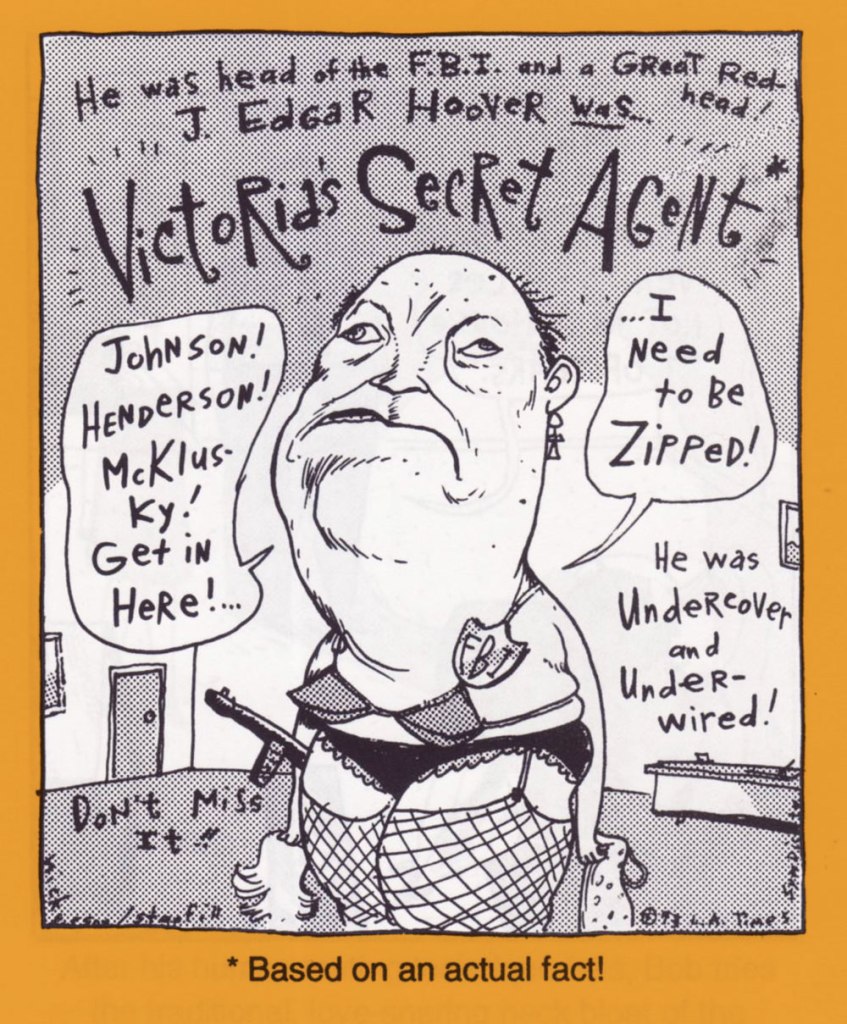 He was head of the F.B.I. and a GReaT Red-
head!
J. EdGaR HooveR was...
VictoRia's SecRet AGeNt*
JohNSoN!
HENDERSoN!
McKlus-
Ky!
Get iN
HeRe!...
...I
Need
to Be
ZiPPeD!
He was
UndeRcoveR
and
Under-
wired!
FBI
DoN't Miss
It!!
©'93 L.A. Times
* Based on an actual fact!